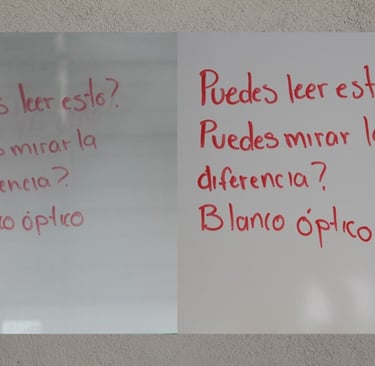 s leer esto?
s mirar la
encia?
co óptico
Puedes leer est
Puedes mirar l
diferencia?
Blanco óptico